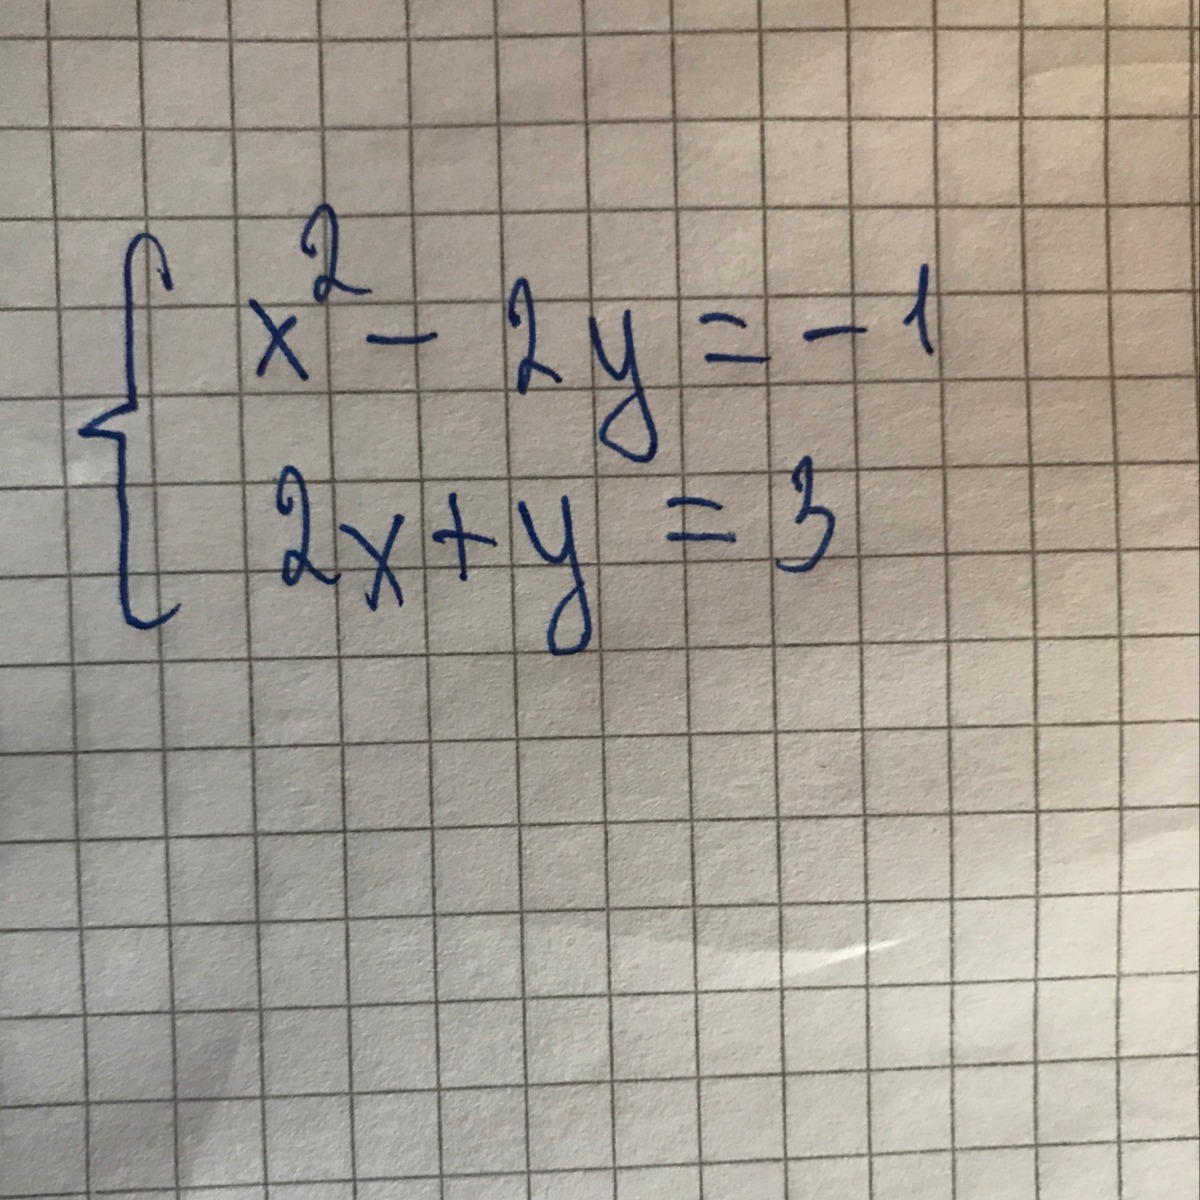 x² - 2y = -1
2x + y = 3